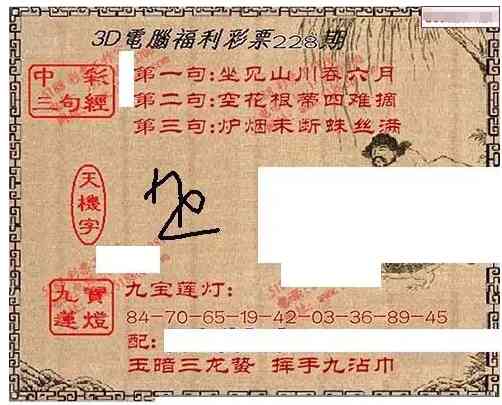 3D電腦福利彩票228期
中彩三句經
第一句:坐见山川吞六月
第二句:空花根蒂四难摘
第三句:炉烟未断蛛丝满
天機字
九寶蓮燈
九宝莲灯:
84-70-65-19-42-03-36-89-45
配:
玉暗三龙蛰 挥手九沾巾